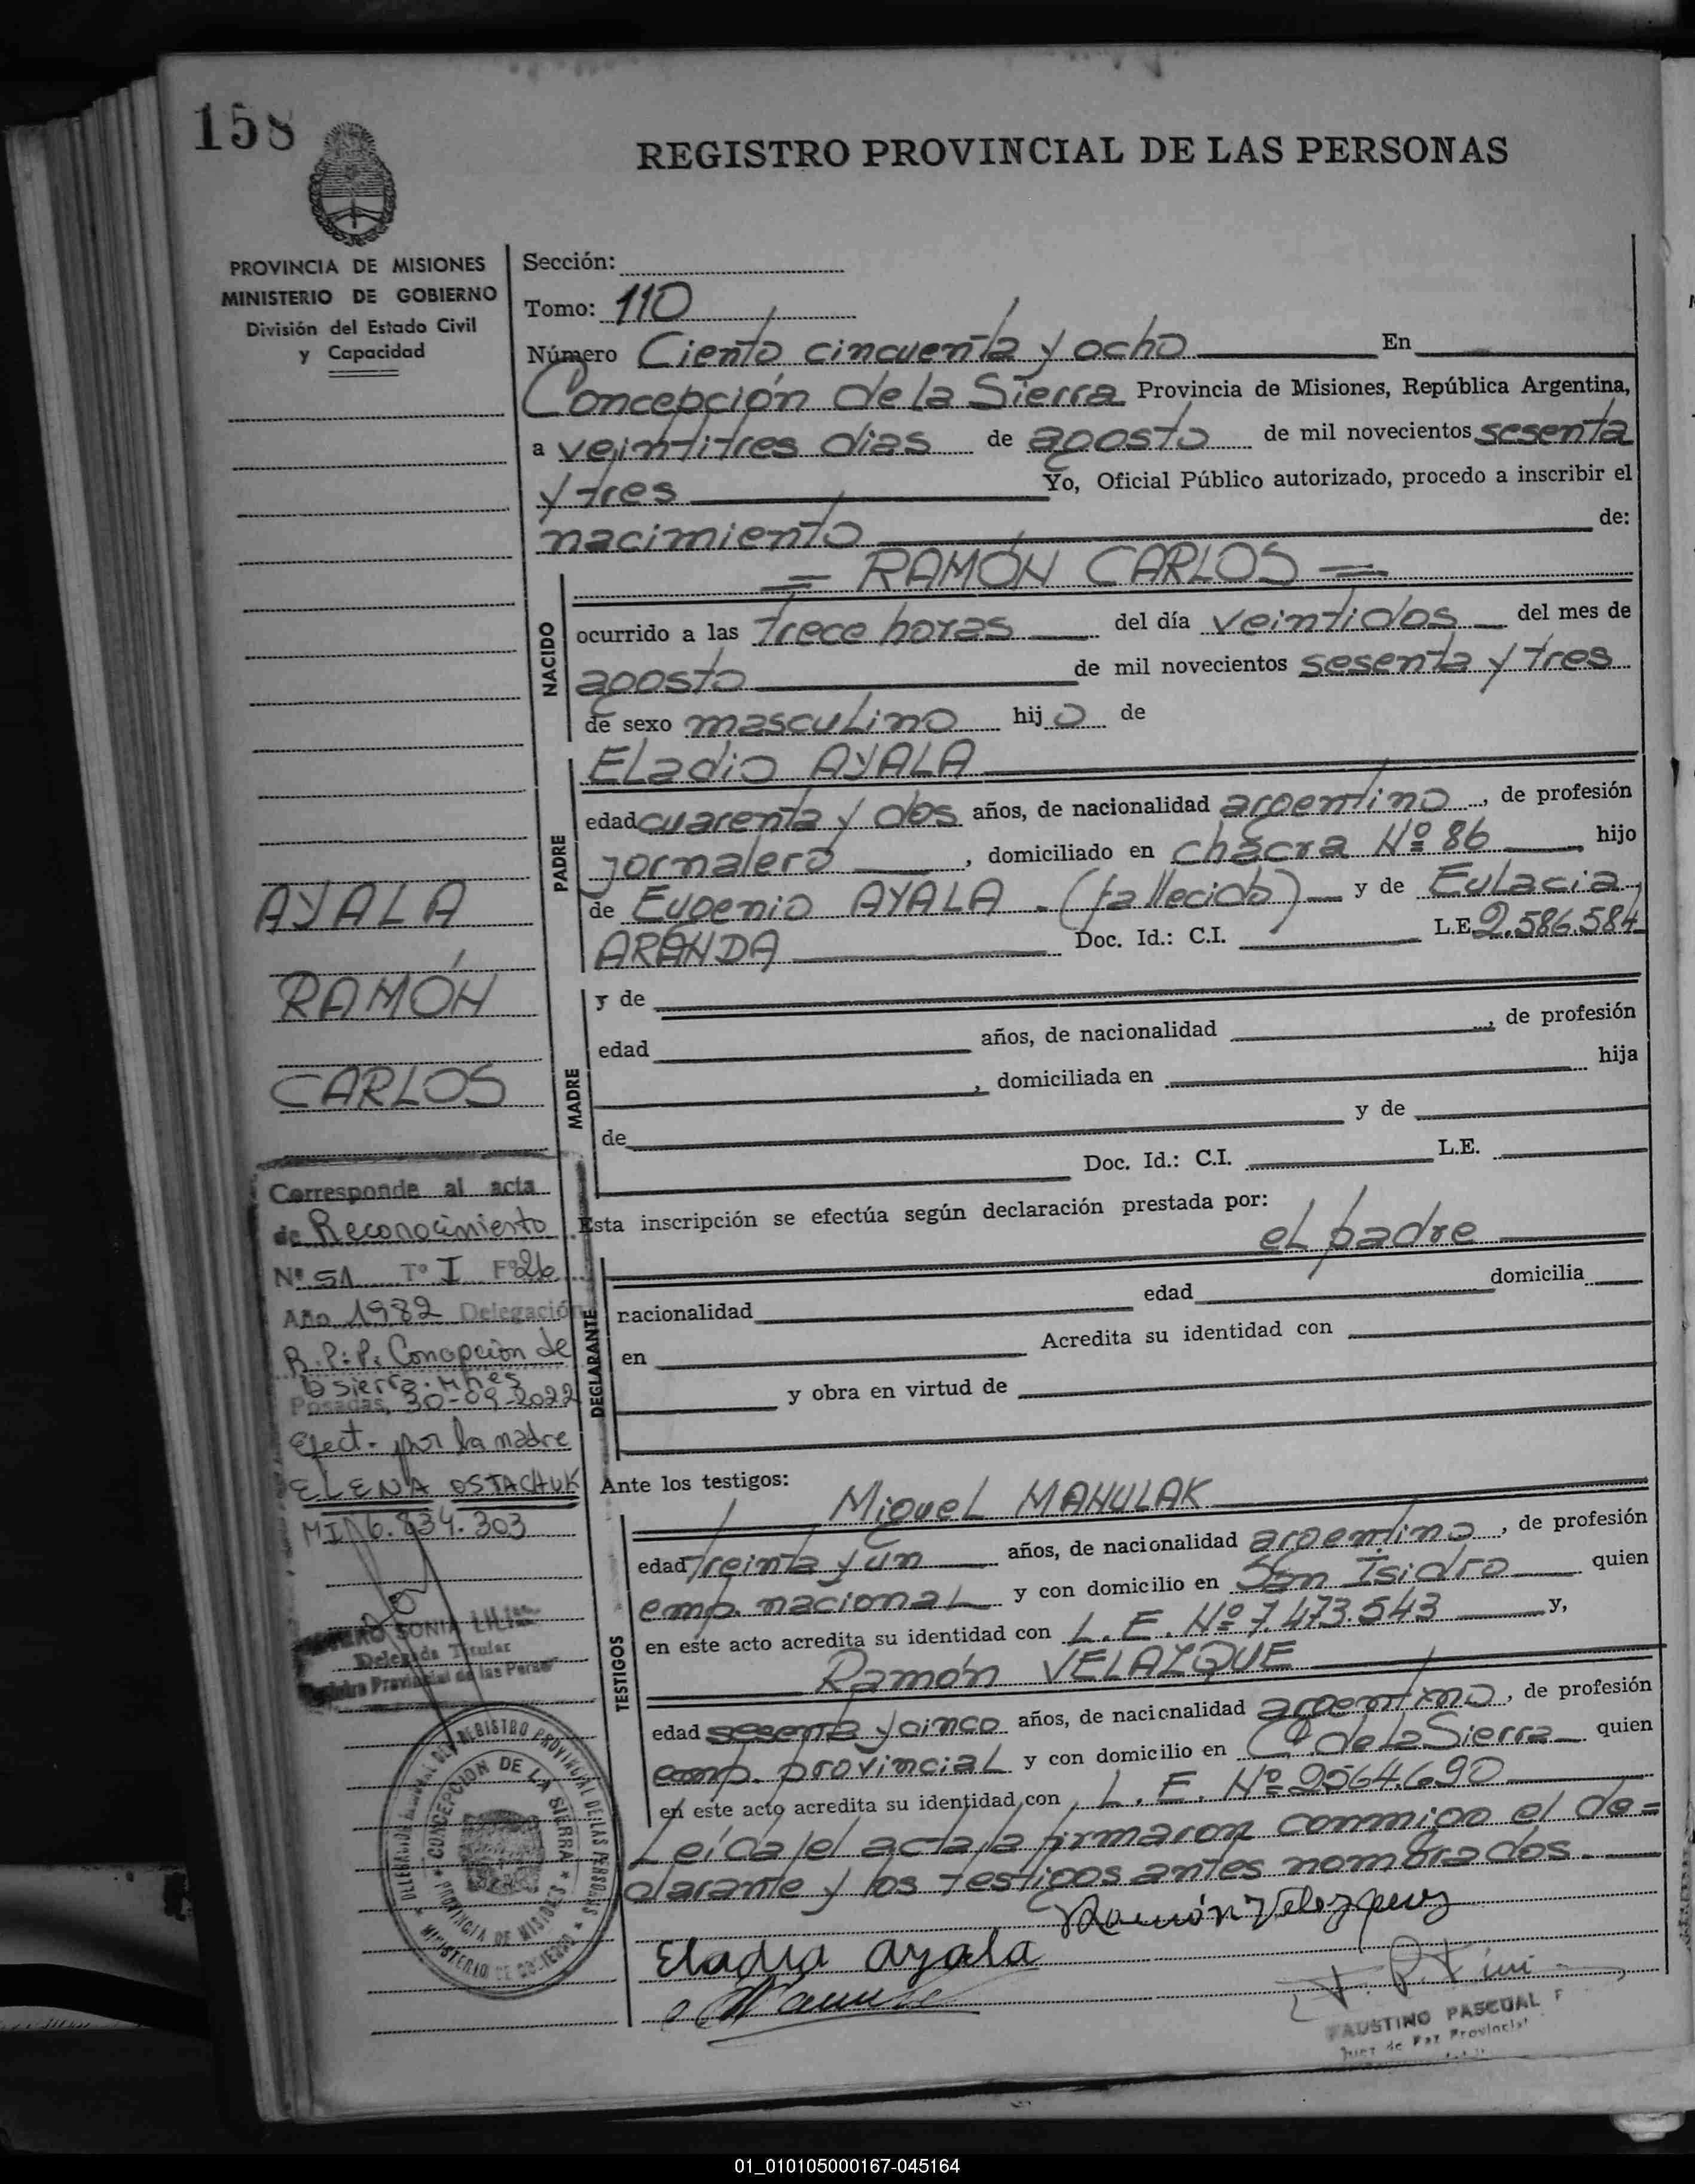 158
REGISTRO PROVINCIAL DE LAS PERSONAS
PROVINCIA DE MISIONES
MINISTERIO DE GOBIERNO
División del Estado Civil
y Capacidad
Sección:
Tomo: 110
Número Ciento cincuenta y ocho En
Concepción de la Sierra Provincia de Misiones, República Argentina,
a veintitres dias de agosto de mil novecientos sesenta
y tres Yo, Oficial Público autorizado, procedo a inscribir el
nacimiento de:
= RAMÓN CARLOS =
NACIDO
ocurrido a las trece horas del día veintidos del mes de
agosto de mil novecientos sesenta y tres
de sexo masculino hijo de
PADRE
Eladio AYALA
edad cuarenta y dos años, de nacionalidad argentino, de profesión
jornalero, domiciliado en chácra Nº 86 hijo
de Eugenio AYALA - (fallecido) y de Eulacia
ARANDA Doc. Id.: C.I. L.E. 2.586.584
MADRE
y de
edad años, de nacionalidad , de profesión
, domiciliada en hija
de y de
Doc. Id.: C.I. L.E.
Esta inscripción se efectúa según declaración prestada por:
el padre
DECLARANTE
nacionalidad edad domicilia
en Acredita su identidad con
y obra en virtud de
Ante los testigos:
TESTIGOS
Miguel MANULAK
edad treinta y un años, de nacionalidad argentino, de profesión
emp. nacional y con domicilio en San Isidro quien
en este acto acredita su identidad con L. E. Nº 7.473.543 y,
Ramón VELAZQUE
edad sesenta y cinco años, de nacionalidad argentino, de profesión
emp. provincial y con domicilio en C. de la Sierra quien
en este acto acredita su identidad con L. E. Nº 2564.690
Leída el acta, la firmaron conmigo el de=
clarante y los testigos antes nombrados.
Ramón Velazquez
Eladio Ayala
FAUSTINO PASCUAL F
Juez de Paz Provincial
AYALA
RAMÓN
CARLOS
Corresponde al acta
de Reconocimiento
Nº 51 Tº I Fº 26
Año 1982 Delegación
R.P.P. Concepción de
la Sierra. Mnes
Posadas, 30-09-2022
Efect. por la madre
ELENA OSTACHUK
MI Nº 6.834.303
SONIA LILI
Delegada Titular
Registro Provincial de las Person
DELEGACION DEL REGISTRO PROVINCIAL DE LAS PERSONAS
* MINISTERIO DE GOBIERNO *
* CONCEPCION DE LA SIERRA *
PROVINCIA DE MISIONES
01_010105000167-045164